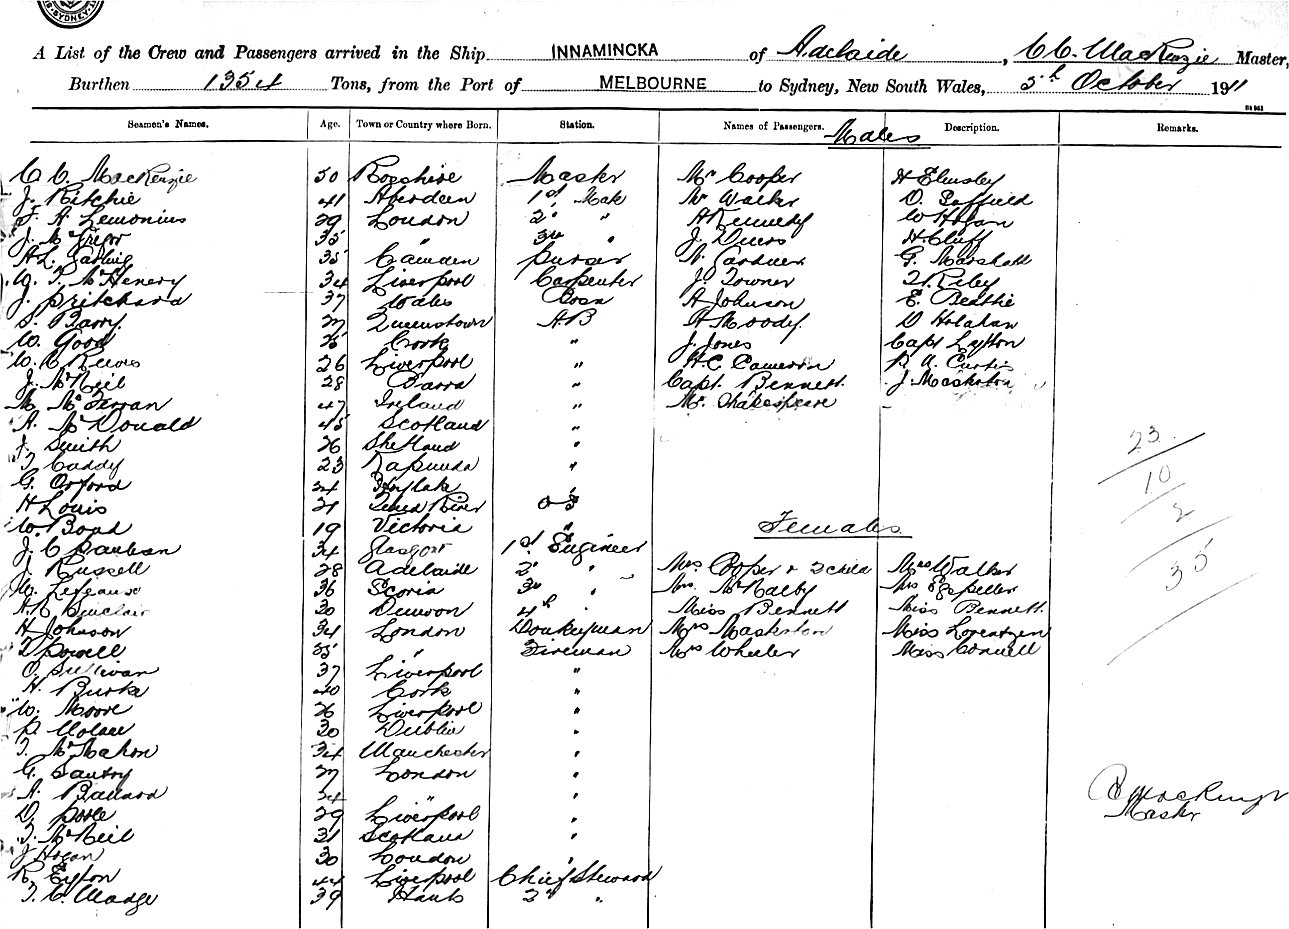 SYDNEY
A List of the Crew and Passengers arrived in the Ship INNAMINCKA of Adelaide, C C. MacKenzie Master,
Burthen 1354 Tons, from the Port of MELBOURNE to Sydney, New South Wales, 5th October 1911
Seamen's Names. Age. Town or Country where Born. Station. Names of Passengers. Description. Remarks.
Males
C C. MacKenzie 50 Rosshire Master Mr Cooper H Elmsley
J. Ritchie 41 Aberdeen 1st Mate Mr Walker D.
F. A. Lemonius 29 London 2d " A Kennedy W Hogan
J. McGregor 35 " 3rd " J. Divers H. Cluff
35 Camden Purser Gardner G. Marshall
G. T. McHenery 34 Liverpool Carpenter J. Towner T. Riley
J. Pritchard 37 Wales Bosn A Johnson E. Beattie
S. Barry 27 Queenstown A.B A Moody. D Holahan
W. Good 26 Cork " J. Jones Capt Lyfton
W. C Reeves 26 Liverpool " H. C Cameron R A. Curtis
J. McNeil 28 Barra " Capt. Bennett. J. Maskston
M. McFerran 47 Ireland " Mr. Shakespeare
A. McDonald 45 Scotland "
J. Smith 26 Shetland "
T. Caddy 23 Kapunda "
G. Orford 24 "
H Louis 21 Tweed River O S
W. Boyd 19 Victoria "
Females
J. C Paulsan 34 Glasgow 1st Engineer
J. Russell 28 Adelaide 2d " Mrs Cooper & 2 child Mrs Walker
36 Scoria 3rd Mrs. McNalby Mrs Egpeller
A. R Sinclair 30 Dunoon 4th " Miss Bennett Miss Bennett.
H Johnson 34 London Donkeyman Mrs Maskston Miss Lorentzen
Powell 35 " Fireman Mrs Wheeler Miss Connell
O. Sullivan 37 Liverpool "
H. Burke 40 Cork "
W. Moore 26 Liverpool "
P. 30 Dublin "
T. McMahon 34 Manchester "
G. Santry 27 London "
A. Ballard 24 " "
D. Poole 29 Liverpool "
T. McNeil 31 Scotland "
J Hogan 30 London "
R. Eyton 44 Liverpool Chief Steward
T. C. Madge 39 Hants 2d "
23
10
2
35
C MacKenzie
Master